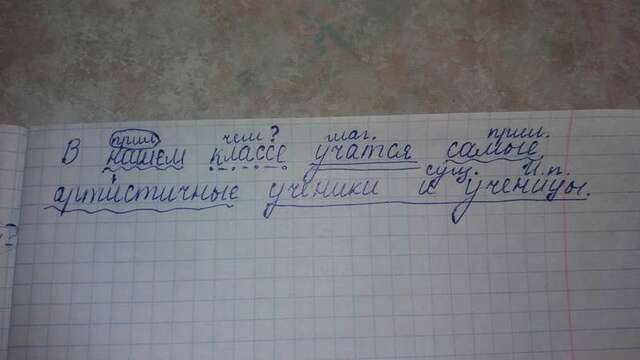 прил. чем? глаг. прил.
В нашем классе учатся самые
сущ. И.п.
артистичные ученики и ученицы.